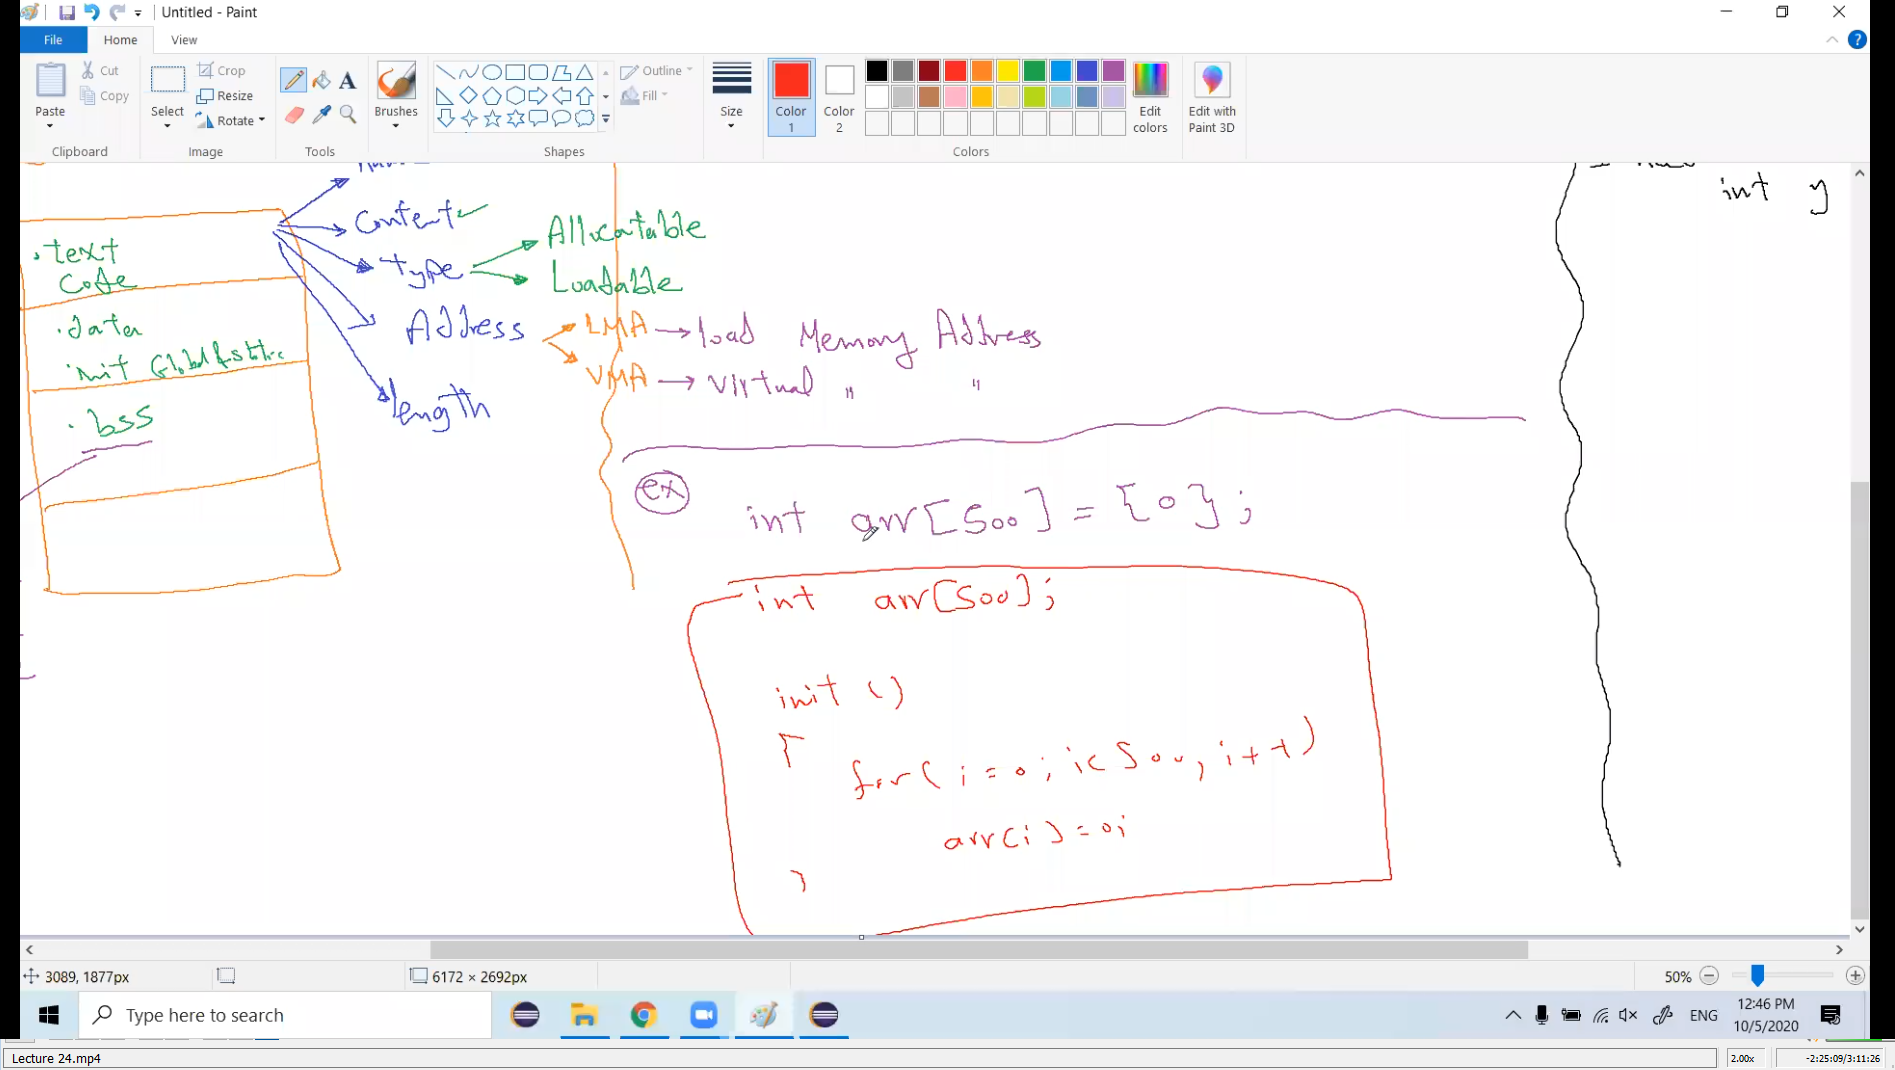 Untitled - Paint
File
Home
View
Paste
Cut
Copy
Clipboard
Select
Crop
Resize
Rotate
Image
Tools
Brushes
Shapes
Outline
Fill
Size
Color 1
Color 2
Edit colors
Edit with Paint 3D
Colors
int y
.text
Code
.data
init Global & static
.bss
Content
type
Allocatable
Loadable
Address
LMA → load Memory Address
VMA → Virtual " "
length
ex
int arr[500] = {0};
int arr[500];
init ()
{
for( i = 0; i< 500; i++)
arr(i) = 0;
}
3089, 1877px
6172 × 2692px
50%
Type here to search
ENG
12:46 PM
10/5/2020
Lecture 24.mp4
2.00x
-2:25:09/3:11:26